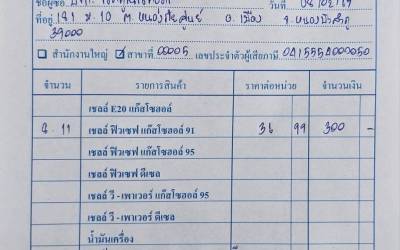 ที่อยู่ 181 ม.10 ต.หนองภัยศูนย์ อ.เมือง จ.หนองบัวลำภู
39000
สำนักงานใหญ่ สาขาที่ 00005 เลขประจำตัวผู้เสียภาษี
จำนวน รายการสินค้า ราคาต่อหน่วย จำนวนเงิน
เชลล์ E20 แก๊สโซฮอล์
8.11 เชลล์ ฟิวเซฟ แก๊สโซฮอล์ 91 36 99 300 -
เชลล์ ฟิวเซฟ แก๊สโซฮอล์ 95
เชลล์ ฟิวเซฟ ดีเซล
เชลล์ วี - เพาเวอร์ แก๊สโซฮอล์ 95
เชลล์ วี - เพาเวอร์ ดีเซล
น้ำมันเครื่อง